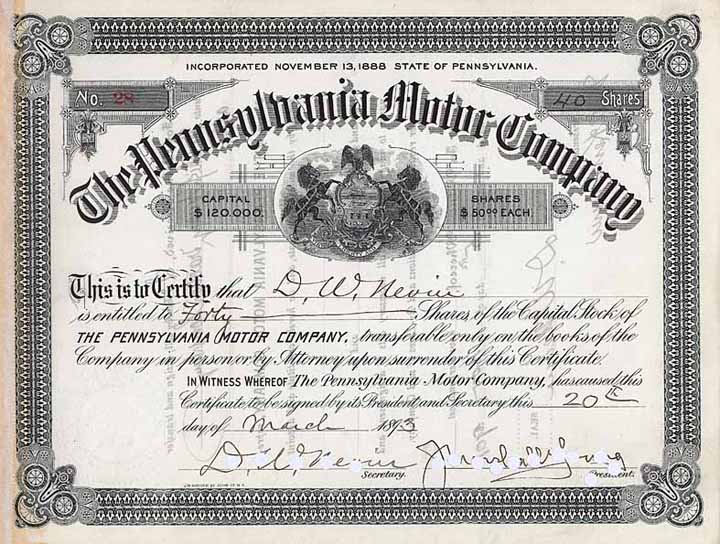 INCORPORATED NOVEMBER 13, 1888 STATE OF PENNSYLVANIA.
No. 28
40 Shares
The Pennsylvania Motor Company
CAPITAL
$120.000.
SHARES
$50.00 EACH.
This is to Certify that D. W. Nevin
is entitled to Forty Shares of the Capital Stock of
THE PENNSYLVANIA MOTOR COMPANY, transferable only on the books of the
Company in person or by Attorney upon surrender of this Certificate.
IN WITNESS WHEREOF The Pennsylvania Motor Company, has caused this
Certificate to be signed by its President and Secretary this 20th
day of March 1893
D. W. Nevin
Secretary.
President.